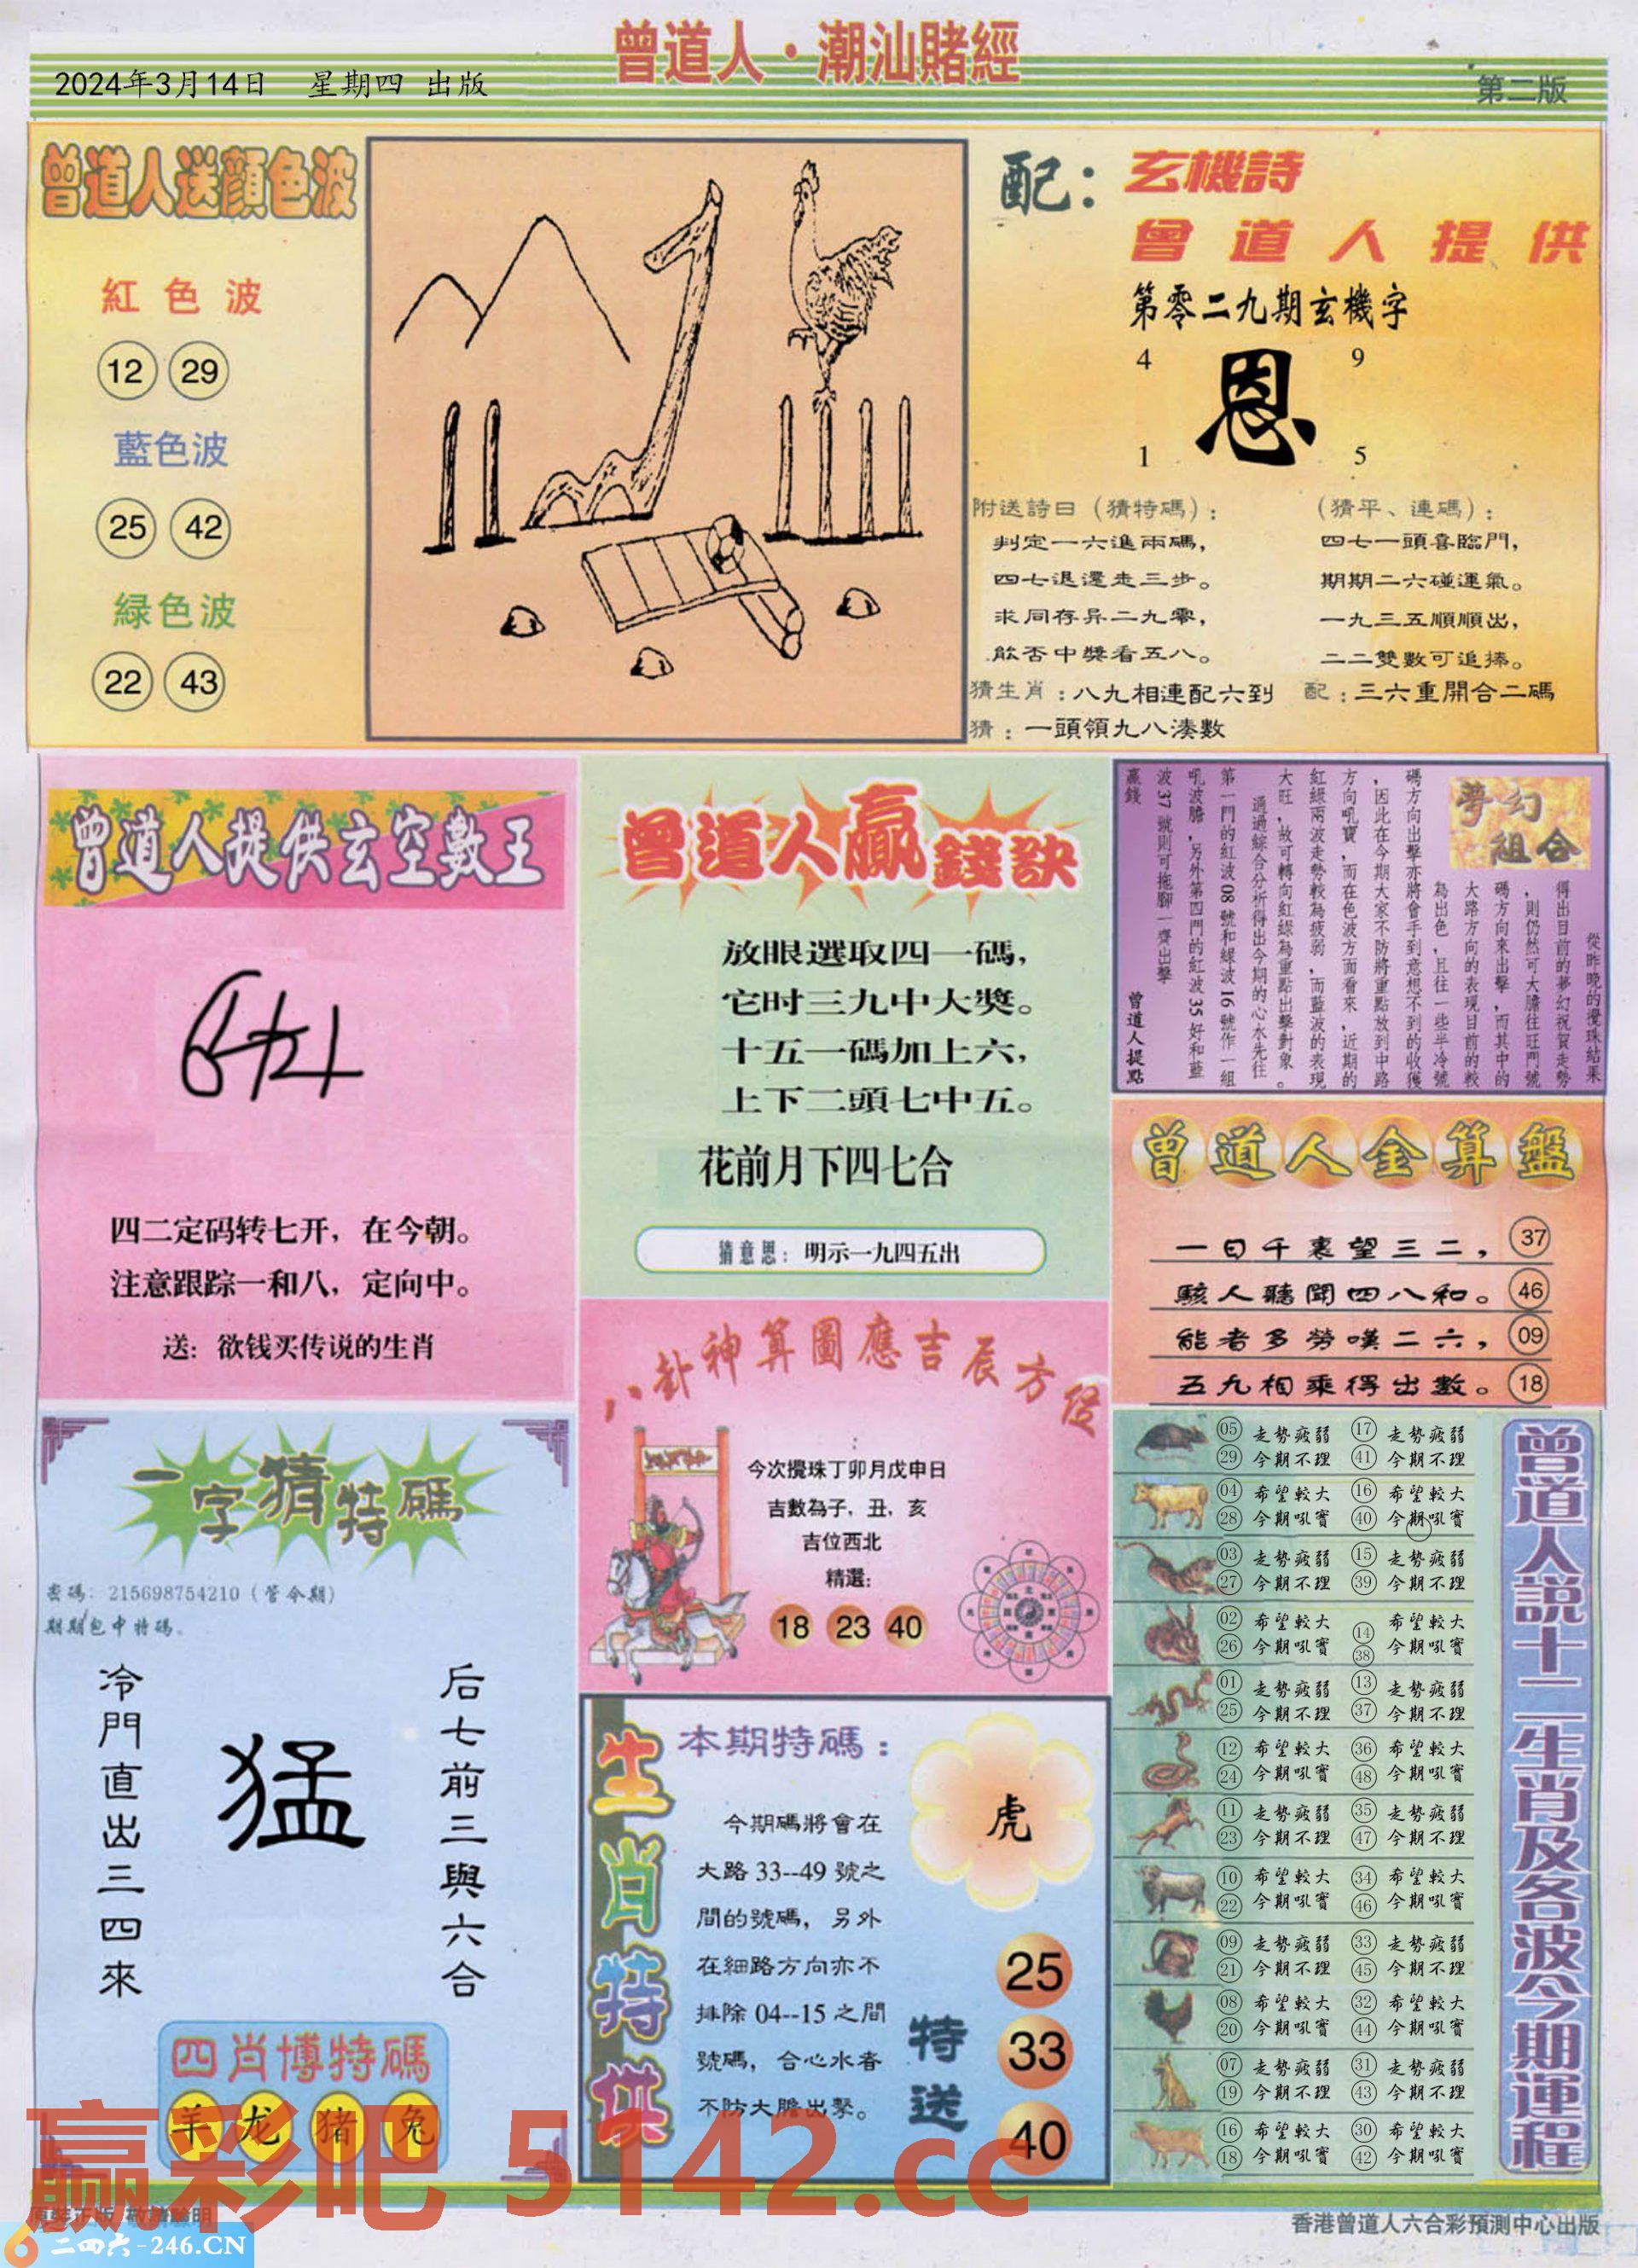 曾道人·潮汕賭經
2024年3月14日 星期四 出版
第二版
曾道人送顏色波
紅色波
12 29
藍色波
25 42
緑色波
22 43
配：玄機詩
曾道人提供
第零二九期玄機字
4 9
恩
1 5
附送詩曰（猜特碼）：
判定一六進兩碼，
四七退還走三步。
求同存异二九零，
能否中獎看五八。
（猜平、連碼）：
四七一頭喜臨門，
期期二六碰運氣。
一九三五順順出，
二二雙數可追捧。
猜生肖：八九相連配六到
配：三六重開合二碼
猜：一頭領九八湊數
曾道人提供玄空數王
四二定码转七开，在今朝。
注意跟踪一和八，定向中。
送：欲钱买传说的生肖
曾道人贏錢訣
放眼選取四一碼，
它时三九中大獎。
十五一碼加上六，
上下二頭七中五。
花前月下四七合
猜意思：明示一九四五出
夢幻組合
從昨晚的攪珠結果
得出目前的夢幻祝賀走勢
，則仍然可大膽往旺門號
碼方向來出擊，而其中的
大路方向的表現目前的較
為出色，且往一些半冷號
碼方向出擊亦將會手到意想不到的收獲
，因此在今期大家不防將重點放到中路
方向吼寶，而在色波方面看來，近期的
紅綠兩波走勢較為疲弱，而藍波的表現
大旺，故可轉向紅綠為重點出擊對象。
通過綜合分析得出今期的心水先往
第一門的紅波08號和綠波16號作一組
吼波膽，另外第四門的紅波35好和藍
波37號則可拖腳一齊出擊
贏錢
曾道人提點
曾道人金算盤
一日千裏望三二， 37
駭人聽聞四八和。 46
能者多勞嘆二六， 09
五九相乘得出數。 18
八卦神算圖應吉辰方位
今次攪珠丁卯月戊申日
吉數為子，丑，亥
吉位西北
精選：
18 23 40
一字猜特碼
密碼：215698754210（管令期）
期期包中特碼。
冷門直出三四來
猛
后七前三與六合
四肖博特碼
羊 龙 猪 兔
生肖特供
本期特碼：
虎
今期碼將會在
大路33--49號之
間的號碼，另外
在細路方向亦不
排除04--15之間
號碼，合心水者
不防大膽出擊。
特送
25
33
40
曾道人說十二生肖及各波今期運程
05 走勢疲弱 17 走勢疲弱
29 今期不理 41 今期不理
04 希望較大 16 希望較大
28 今期吼寶 40 今期吼寶
03 走勢疲弱 15 走勢疲弱
27 今期不理 39 今期不理
02 希望較大 14 希望較大
26 今期吼寶 38 今期吼寶
01 走勢疲弱 13 走勢疲弱
25 今期不理 37 今期不理
12 希望較大 36 希望較大
24 今期吼寶 48 今期吼寶
11 走勢疲弱 35 走勢疲弱
23 今期不理 47 今期不理
10 希望較大 34 希望較大
22 今期吼寶 46 今期吼寶
09 走勢疲弱 33 走勢疲弱
21 今期不理 45 今期不理
08 希望較大 32 希望較大
20 今期吼寶 44 今期吼寶
07 走勢疲弱 31 走勢疲弱
19 今期不理 43 今期不理
16 希望較大 30 希望較大
18 今期吼寶 42 今期吼寶
赢彩吧 5142.cc
二四六-246.CN
香港曾道人六合彩預測中心出版